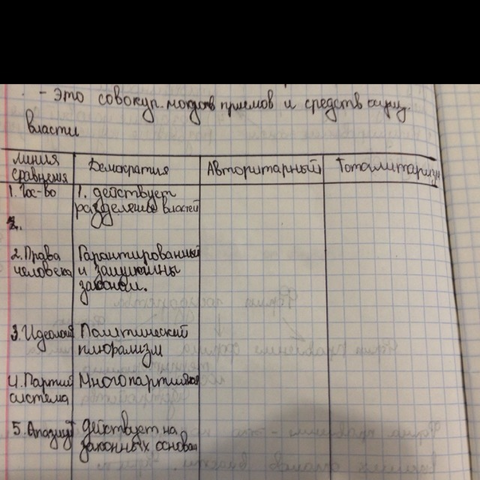 - Это совокуп. методов приемов и средств осущ.
власти
линия сравнения | Демократия | Авторитарный | Тоталитаризм
1. Гос-во | 1. действует
разделение властей
2.
2. Права | Гарантированны
человека | и защищены
законом.
3. Идеология | Политический
плюрализм
4. Партий | Многопартийная
система
5. Оппозиц | действует на
законных основан